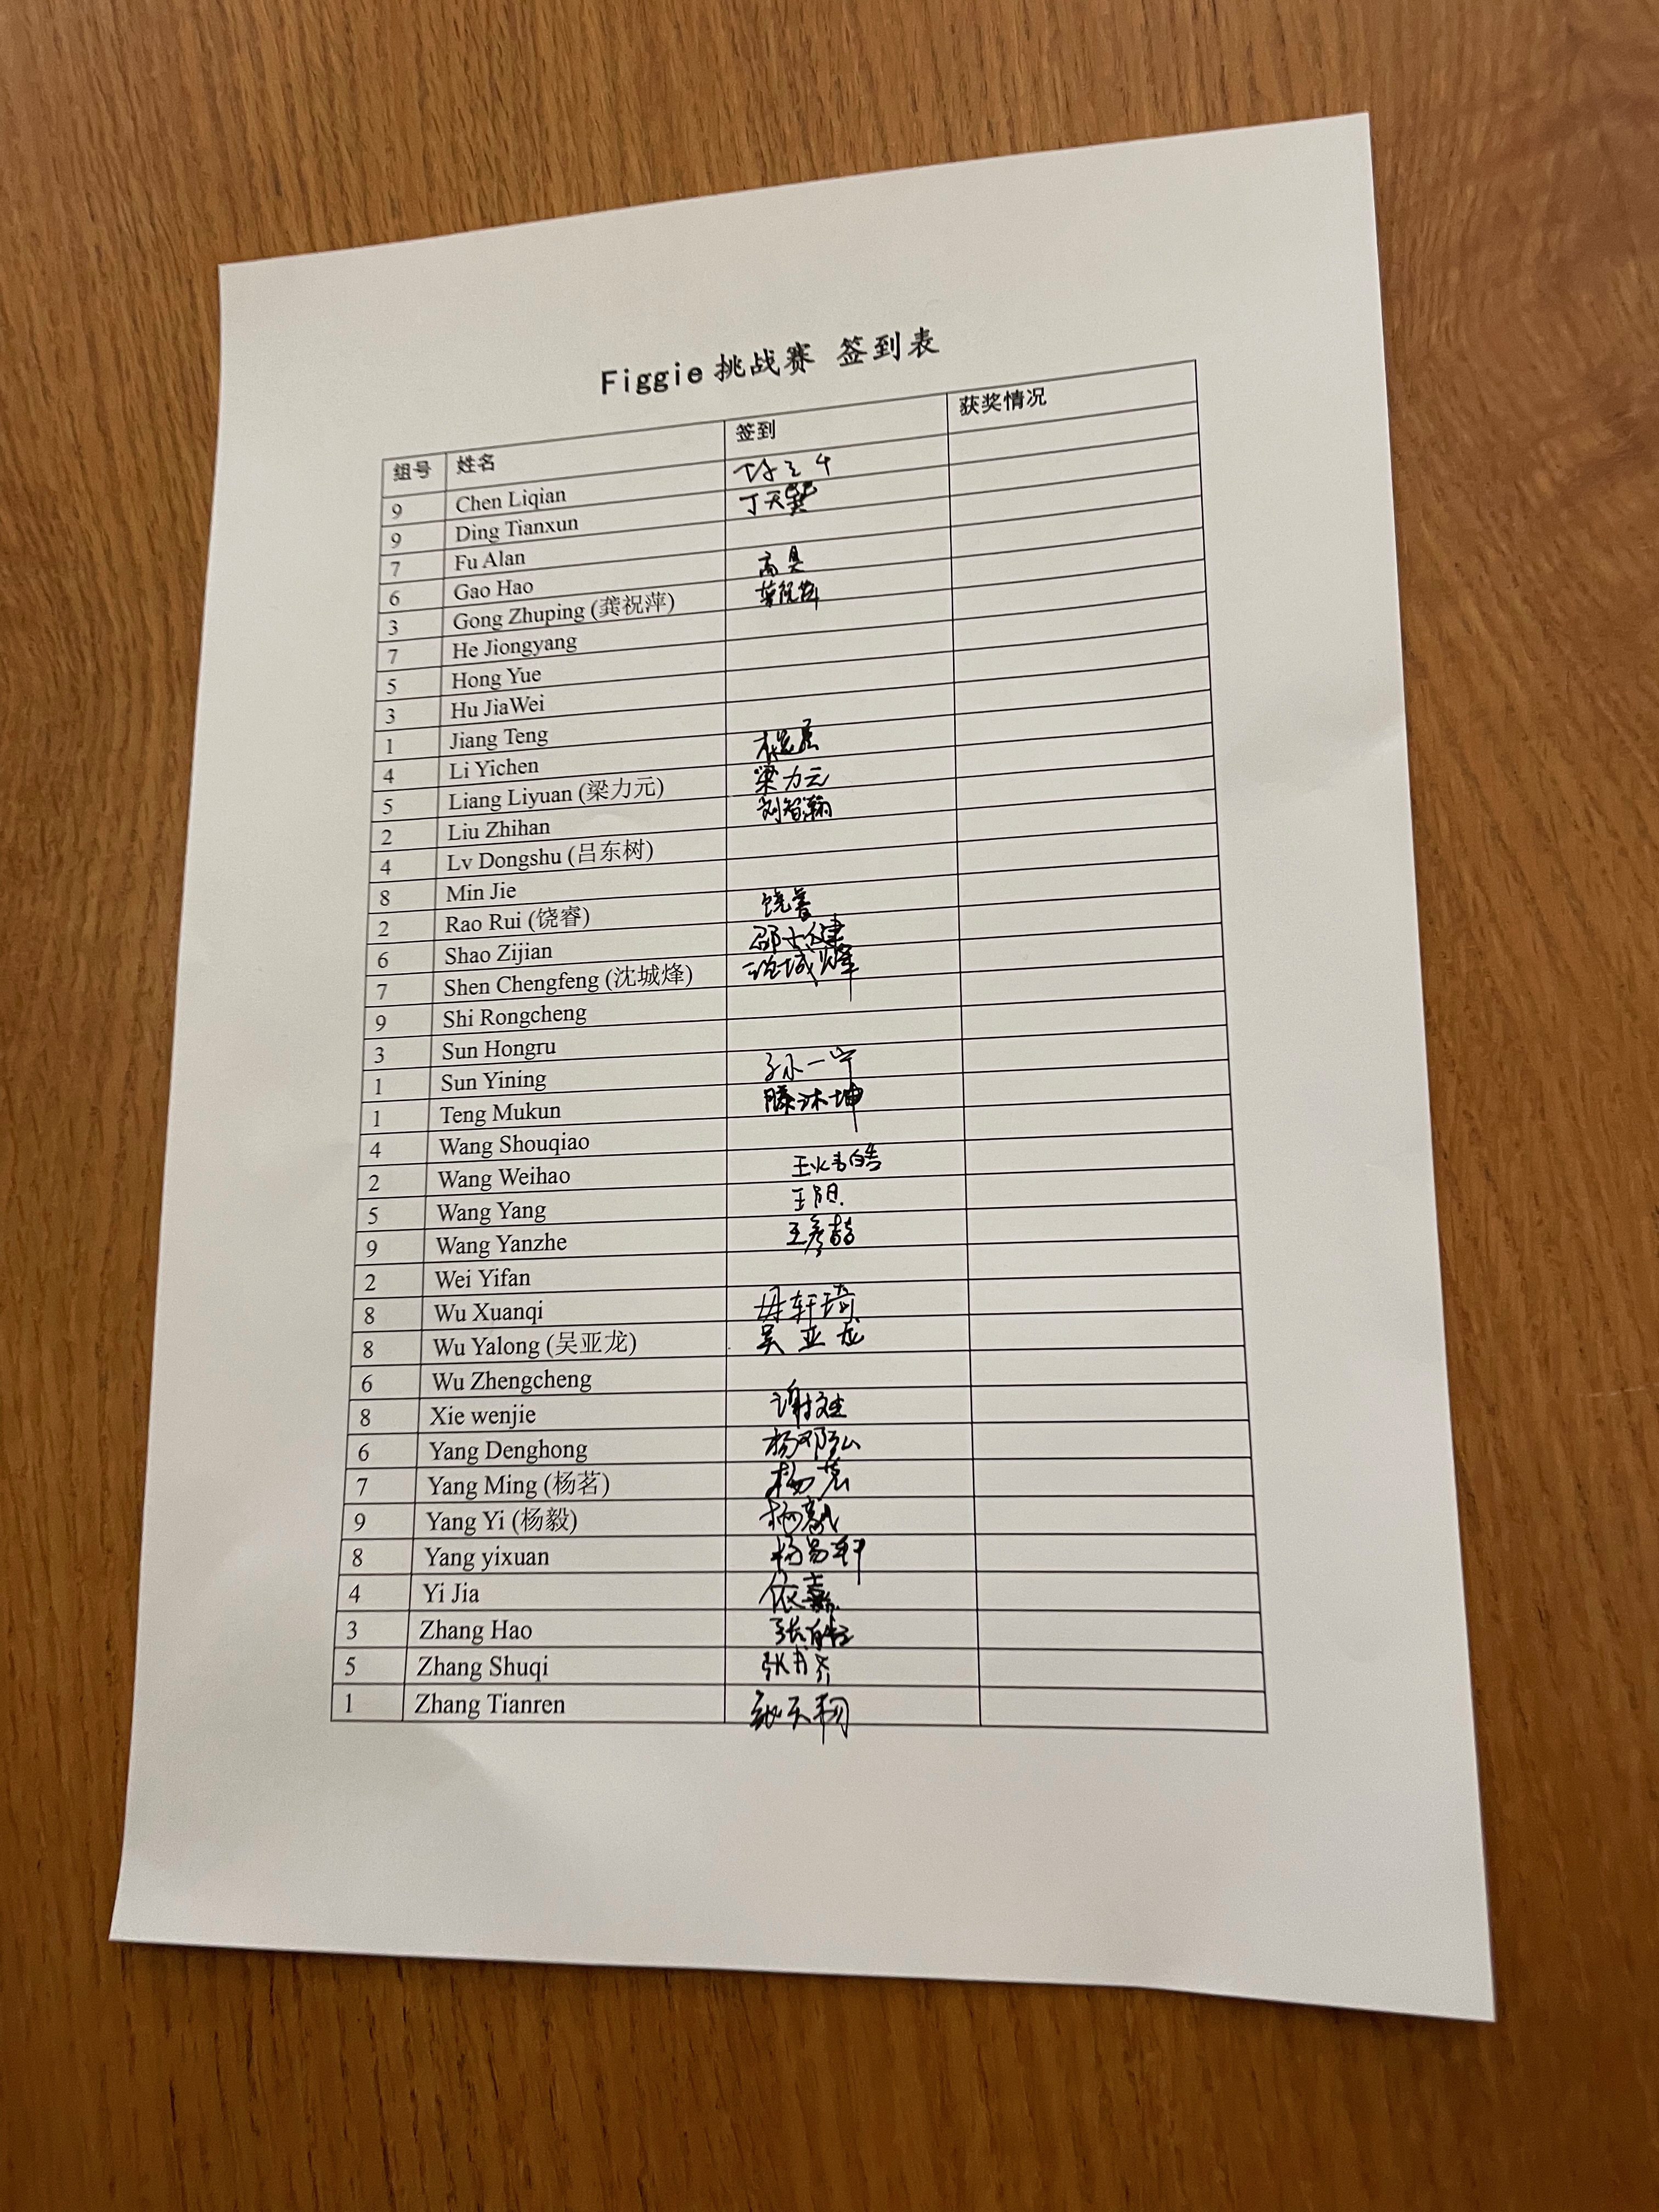 Figgie 挑战赛 签到表
组号 姓名 签到 获奖情况
9 Chen Liqian
9 Ding Tianxun 丁天巽
7 Fu Alan
6 Gao Hao 高昊
3 Gong Zhuping (龚祝萍) 龚祝萍
7 He Jiongyang
5 Hong Yue
3 Hu JiaWei
1 Jiang Teng
4 Li Yichen
5 Liang Liyuan (梁力元) 梁力元
2 Liu Zhihan 刘智瀚
4 Lv Dongshu (吕东树)
8 Min Jie
2 Rao Rui (饶睿) 饶睿
6 Shao Zijian 邵子健
7 Shen Chengfeng (沈城烽) 沈城烽
9 Shi Rongcheng
3 Sun Hongru
1 Sun Yining 孙一宁
1 Teng Mukun 滕沐坤
4 Wang Shouqiao
2 Wang Weihao 王炜皓
5 Wang Yang 王阳
9 Wang Yanzhe 王彦喆
2 Wei Yifan
8 Wu Xuanqi 毋轩琦
8 Wu Yalong (吴亚龙) 吴亚龙
6 Wu Zhengcheng
8 Xie wenjie 谢文杰
6 Yang Denghong 杨邓弘
7 Yang Ming (杨茗) 杨茗
9 Yang Yi (杨毅) 杨毅
8 Yang yixuan 杨易轩
4 Yi Jia 依嘉
3 Zhang Hao
5 Zhang Shuqi 张书齐
1 Zhang Tianren 张天韧